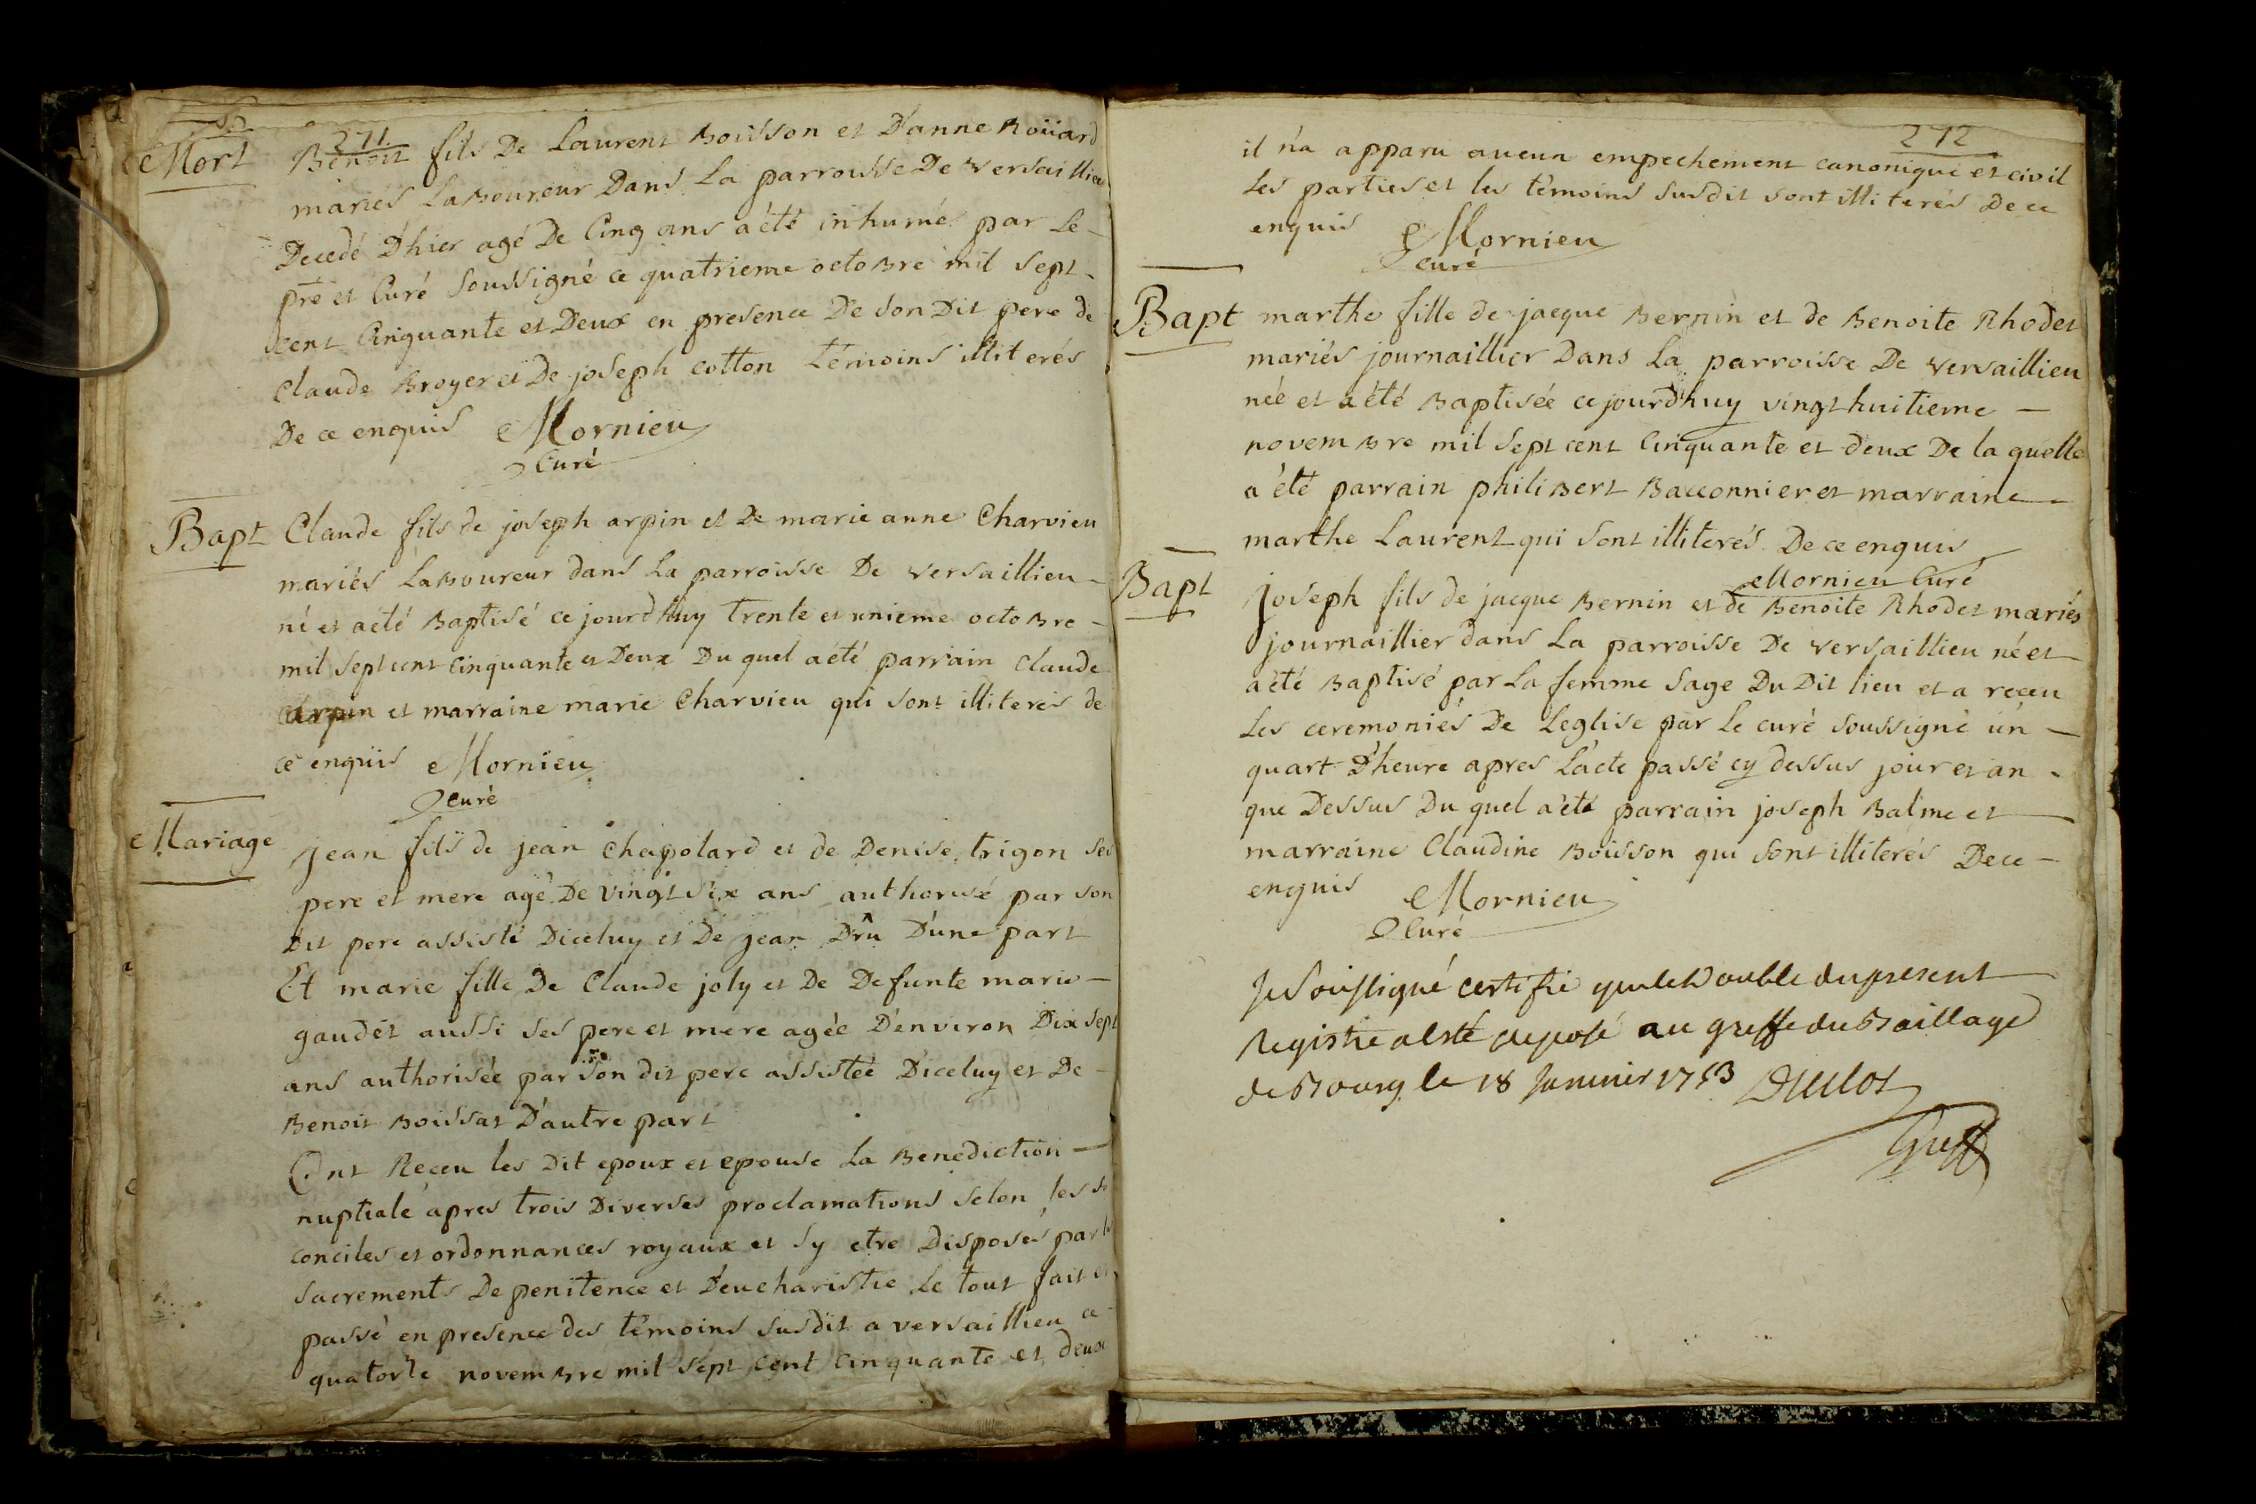 271
Mort
Benoit fils De Laurent Boisson et D'anne Roüard
mariés Laboureur Dans La parroisse De versaillieu
Decedé D'hier agé De Cinq ans a été inhumé par Le
pre et Curé Soussigné ce quatrieme octobre mil sept
cent Cinquante et Deux en presence De son Dit pere de
Claude Broyer et De joseph cotton témoins illiterés
De ce enquis Mornieu
Curé
Bapt
Claude fils de joseph arpin et De marie anne Charvieu
mariés Laboureur dans la parroisse De versaillieu
né et a été Baptisé ce jourd'huy trente et unieme octobre
mil sept cent cinquante et Deux Du quel a été parrain claude
arpin et marraine marie Charvieu qui sont illiterés de
ce enquis Mornieu
curé
Mariage
jean fils de jean chapolard et de Denise trigon ses
pere et mere agé De vingt six ans authorisé par son
Dit pere assisté Diceluy et De jean Drû D'une part
Et marie fille De Claude joly et De Defunte marie
gaudet aussi ses pere et mere agée D'environ Dix sept
ans authorisée par son dit pere assistée Diceluy et De
Benoit Boissat D'autre part
Ont Receu les Dit epoux et epouse la Benediction
nuptiale apres trois Diverses proclamations selon les
conciles et ordonnances royaux et sy etre Disposés par
sacrements De penitence et D'eucharistie le tout fait
passé en presence des témoins susdit a versaillieu ce
quatorze novembre mil sept cent cinquante et deux
272
il n'a apparu aucun empechement canonique et civil
les parties et les témoins susdit sont illiterés De ce
enquis Mornieu
curé
Bapt
marthe fille de jacque Bernin et de Benoite Rhodet
mariés journaillier Dans La parroisse De versaillieu
née et a été Baptisée ce jourd'huy vingt huitieme
novembre mil sept cent Cinquante et deux De la quelle
a été parrain philibert Bacconnier et marraine
marthe Laurent qui sont illiterés De ce enquis
Mornieu Curé
Bapt
joseph fils de jacque Bernin et de Benoite Rhodet mariés
journaillier dans La parroisse De versaillieu né et
a été Baptisé par La femme sage Du Dit lieu et a receu
Les ceremoniés De Leglise par Le curé soussigné un
quart D'heure apres L'acte passé cy dessus jour et an
que Dessus Du quel a été parrain joseph Balme et
marraine Claudine Boisson qui sont illiterés De ce
enquis Mornieu
Curé
Je Soussigné certifie que le Double du present
Registre a esté deposé au greffe du Baillage
de Bourg le 18 Janvier 1753
Greff